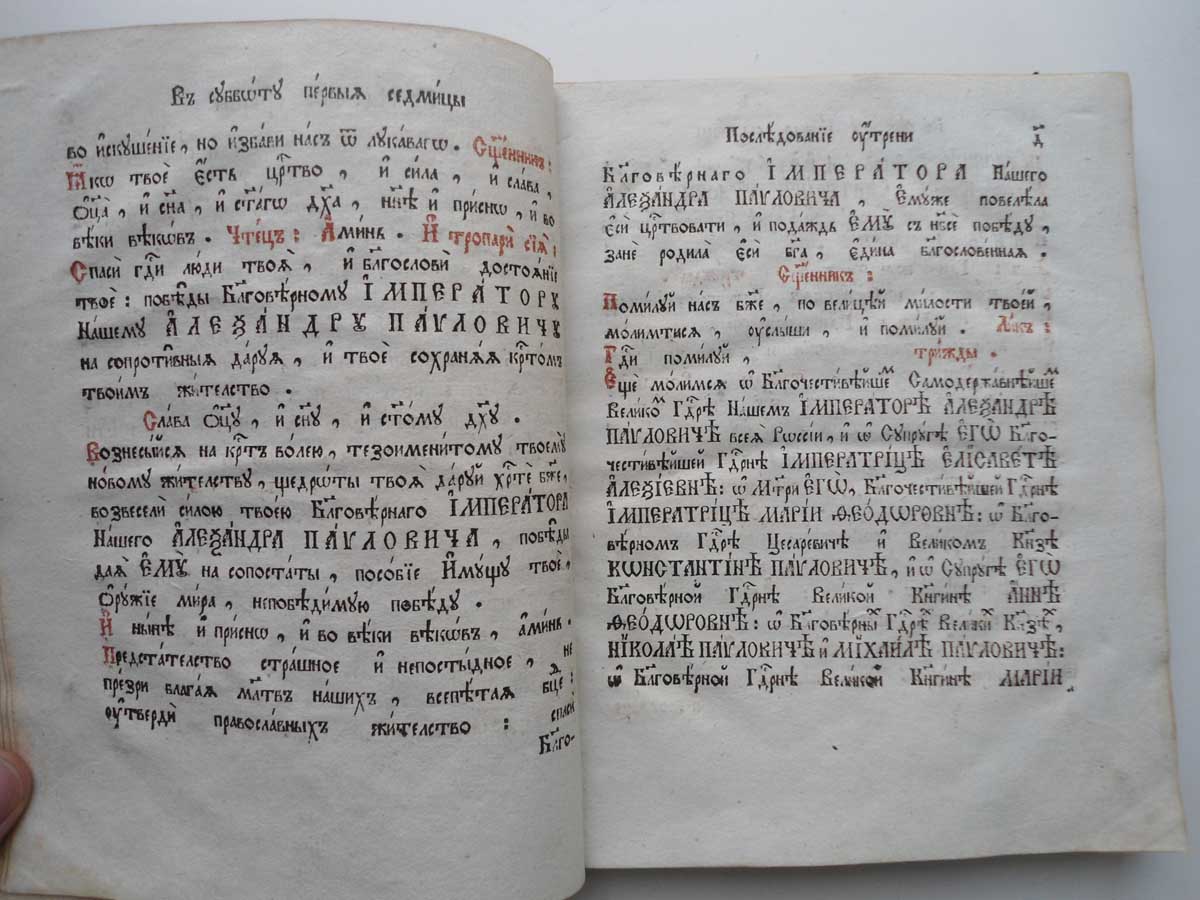 Въ суббѡ́ту пе́рвыѧ седми́цы
во и҆скуше́нїе, но и҆зба́ви на́съ ѿ лꙋка́вагѡ. Сщ҃е́нникъ:
Ꙗ҆́кѡ твоѐ є҆́сть црⷭ҇тво, и҆ си́ла, и҆ сла́ва,
Ѻ҆ц҃а̀, и҆ сн҃а, и҆ ст҃а́гѡ дх҃а, нн҃ѣ и҆ при́снѡ, и҆ во
вѣ́ки вѣкѡ́въ. Чте́цъ: А҆ми́нь. И҆ тропари̑ сїѧ̑:
Спасѝ гдⷭ҇и лю́ди твоѧ̑, и҆ блгⷭ҇ословѝ достоѧ́нїе
твоѐ: побѣ́ды Блгⷭ҇овѣ́рному І҆МПЕРА́ТОРУ
На́шему А҆ЛЕѮА́НДРУ ПА́ѴЛОВИЧУ
на сопроти̑вныѧ да́руѧ, и҆ твоѐ сохранѧ́ѧ крⷭ҇то́мъ
твои́мъ жи́тельство.
Сла́ва ѻ҆ц҃ꙋ̀, и҆ сн҃ꙋ, и҆ ст҃о́мꙋ дх҃ꙋ.
Вознесы́йсѧ на крⷭ҇тъ во́лею, тезоимени́тому твоемꙋ̀
но́вому жи́тельству, щедрѡ́ты твоѧ̑ да́рꙋй хрⷭ҇тѐ бж҃е,
возвеселѝ си́лою твое́ю Блгⷭ҇овѣ́рнаго І҆МПЕРА́ТОРА
На́шего А҆ЛЕѮА́НДРА ПА́ѴЛОВИЧА, побѣ́ды
даѧ̀ Е҆МꙊ̀ на сопоста́ты, посо́бїе И҆мꙋ́щꙋ твоѐ,
ѻ҆рꙋ́жїе ми́ра, непобѣди́мую побѣ́дꙋ.
И҆ ны́нѣ и҆ при́снѡ, и҆ во вѣ́ки вѣкѡ́въ, а҆ми́нь.
Предста́тельство стра́шное и҆ непосты́дное, не
пре́зри благаѧ мл҃твъ на́шихъ, всепѣ́таѧ бц҃е:
ѹ҆твердѝ правосла́вныхъ жи́тельство: спасѝ
Блгⷭ҇о-
Послѣ́дованїе ѹ҆́трени д҃
Блгⷭ҇овѣ́рнаго І҆МПЕРА́ТОРА На́шего
А҆ЛЕѮА́НДРА ПА́ѴЛОВИЧА, Е҆мꙋ́же повелѣ́ла
є҆сѝ црⷭ҇твовати, и҆ пода́ждь Е҆МꙊ̀ съ нб҃сѐ побѣ́дꙋ,
занѐ родила̀ є҆сѝ бг҃а, є҆ди́на блгⷭ҇ослове́ннаѧ.
Сщ҃е́нникъ:
Поми́лꙋй на́съ бж҃е, по вели́цѣй ми́лости твое́й,
мо́лимтисѧ, ѹ҆слы́ши, и҆ поми́лꙋй. Ли́къ:
Гдⷭ҇и поми́лꙋй, три́жды.
Е҆щѐ мо́лимсѧ ѡ҆ Благочести́вѣйшеⷨ Самодержа́внѣйшеⷨ
Вели́коⷨ Гдⷭ҇рѣ На́шемъ І҆МПЕРА́ТОРѢ А҆ЛЕѮА́НДРѢ
ПА́ѴЛОВИЧѢ всеѧ̀ Рѡссі́и, и҆ ѡ҆ Сꙋпрꙋ́гѣ Е҆ГѠ̀ Благо-
чести́вѣйшей Гдⷭ҇рнѣ І҆МПЕРАТРІ́ЦѢ Е҆ЛІСАВЕ́ТѢ
А҆ЛЕѮІ́ЕВНѢ: ѡ҆ Мт҃ри Е҆ГѠ̀, Благочести́вѣйшей Гдⷭ҇рнѣ
І҆МПЕРАТРІ́ЦѢ МАРІ́И ѲЕО́ДѠРОВНѢ: ѡ҆ Благо-
вѣ́рномъ Гдⷭ҇рѣ Цесаре́вичѣ и҆ Вели́комъ Кнѧ́зѣ
КѠНСТАНТІ́НѢ ПА́ѴЛОВИЧѢ, и҆ ѡ҆ Сꙋпрꙋ́гѣ Е҆ГѠ̀
Благовѣ́рной Гдⷭ҇рнѣ Вели́кой Кнѧги́нѣ А҆́ННѢ
ѲЕО́ДѠРОВНѢ: ѡ҆ Благовѣ́рныⷯ Гдⷭ҇рѣⷯ Вели́киⷯ Кнѧ́зѣⷯ,
НІКОЛА́Ѣ ПА́ѴЛОВИЧѢ и҆ МІХАИ́ЛѢ ПА́ѴЛОВИЧѢ:
ѡ҆ Благовѣ́рной Гдⷭ҇рнѣ Вели́кой Кнѧги́нѣ МАРІ́И